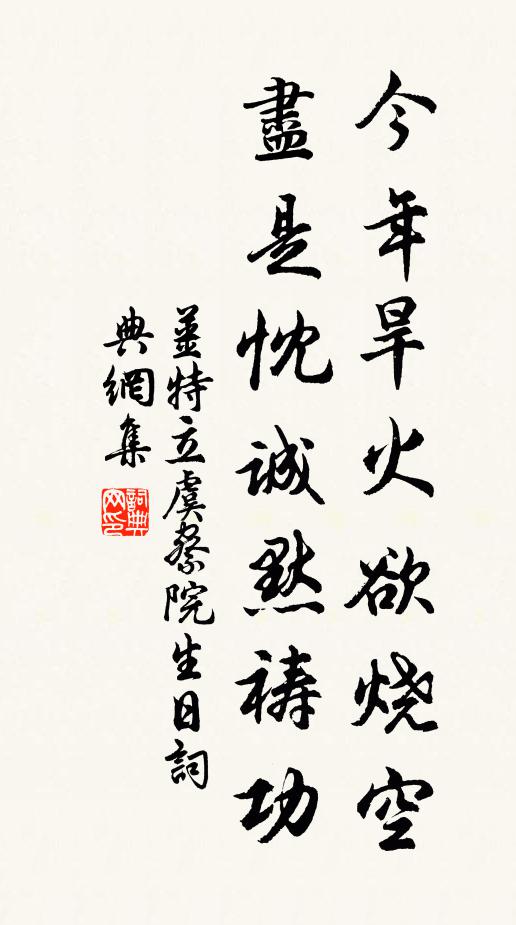 今年旱火欲烧空
盡是忱誠默祷功
薑特立虞察院生日詞
典網集
詞典网印